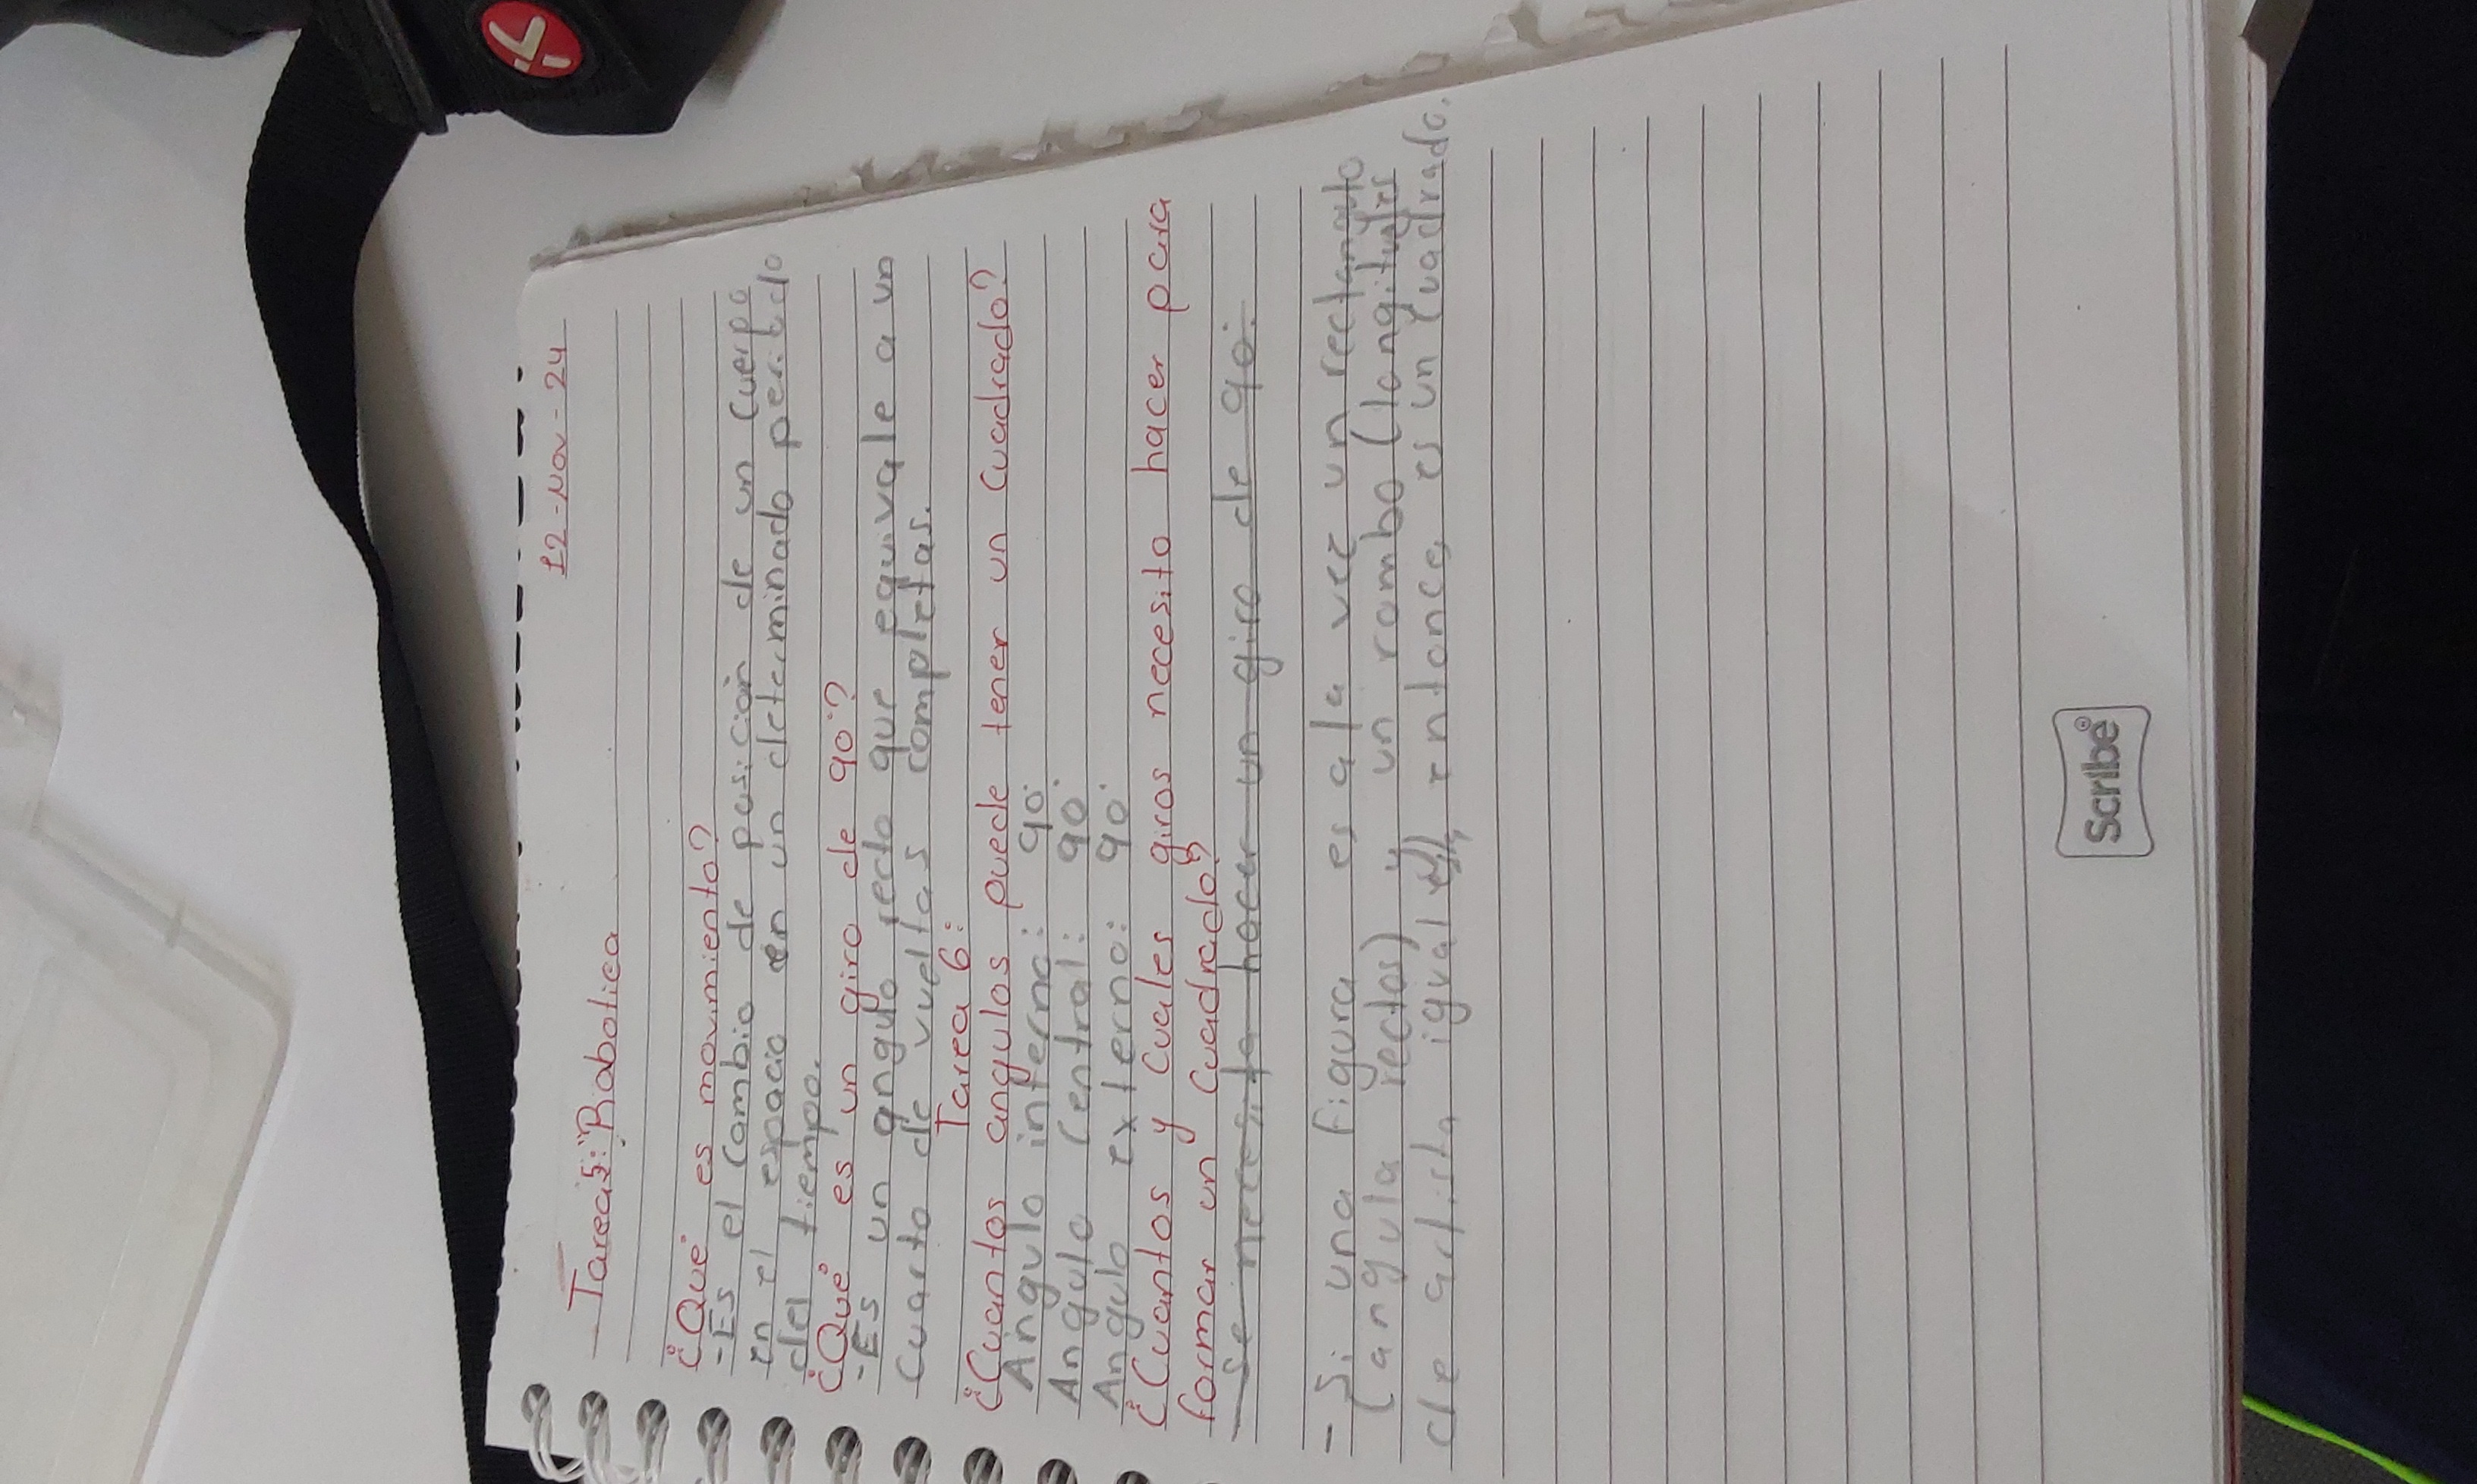 12-Nov-24
Tarea5: "Robotica
¿Qué es movimiento?
-Es el cambio de posición de un cuerpo
en el espacio en un determinado periodo
del tiempo.
¿Qué es un giro de 90°?
-Es un angulo recto que equivale a un
cuarto de vueltas completas.
Tarea 6:
¿Cuantos angulos puede tener un cuadrado?
Angulo interno: 90°
Angulo central: 90°
Angulo externo: 90°
¿Cuantos y cuales giros necesito hacer para
formar un cuadrado?
- se necesita hacer un giro de 90°.
- Si una figura es a la vez un rectangulo
(angula rectos) y un rombo (longitudes
de arista igual), entonces es un cuadrado.
Scribe®